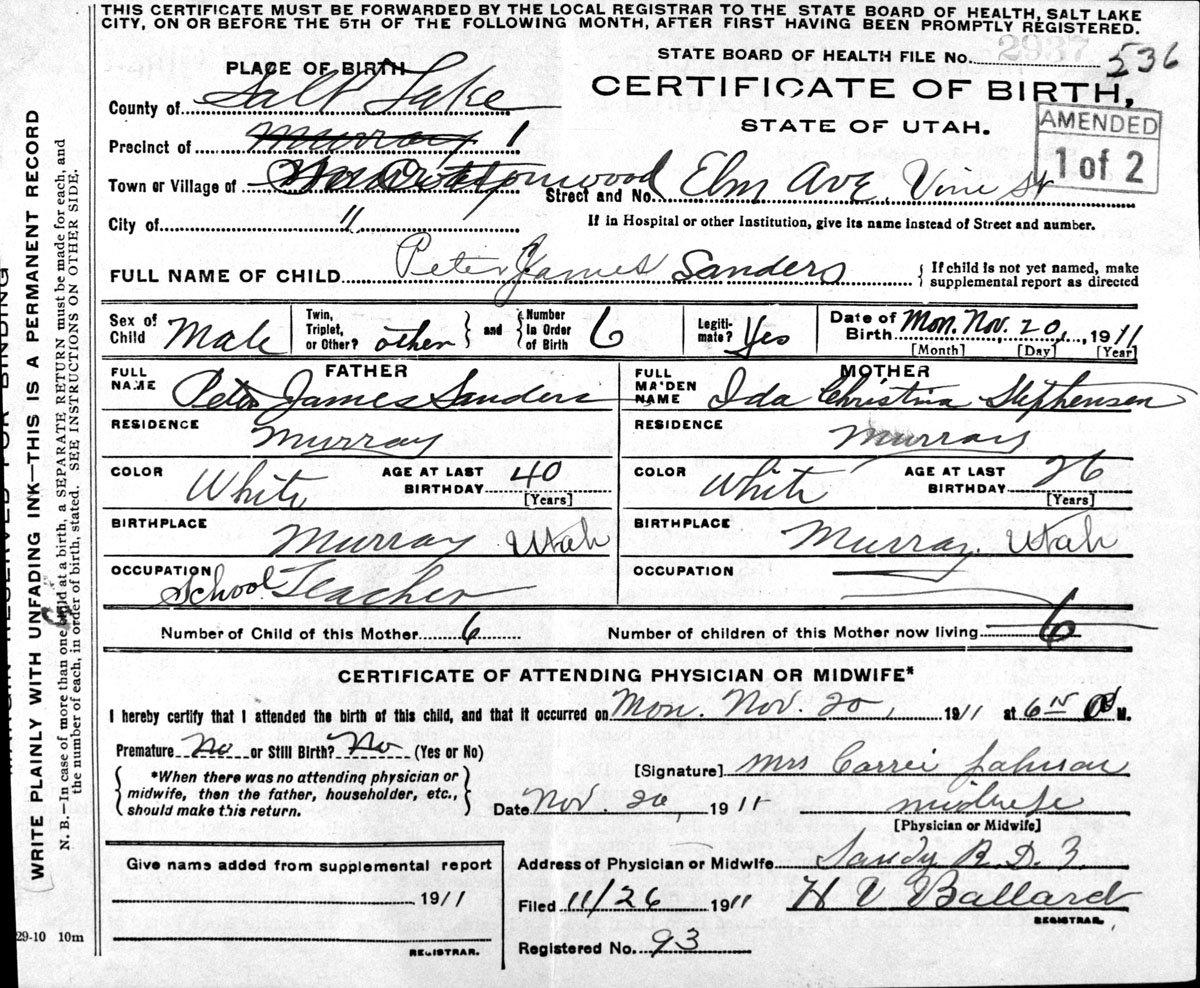 THIS CERTIFICATE MUST BE FORWARDED BY THE LOCAL REGISTRAR TO THE STATE BOARD OF HEALTH, SALT LAKE
CITY, ON OR BEFORE THE 5TH OF THE FOLLOWING MONTH, AFTER FIRST HAVING BEEN PROMPTLY REGISTERED.
STATE BOARD OF HEALTH FILE No. 2937 536
PLACE OF BIRTH
CERTIFICATE OF BIRTH,
STATE OF UTAH.
AMENDED
1 of 2
County of Salt Lake
Precinct of Murray 1
Town or Village of Cottonwood
Street and No. Elm Ave, Vine St
City of "
If in Hospital or other Institution, give its name instead of Street and number.
FULL NAME OF CHILD Peter James Sanders
If child is not yet named, make
supplemental report as directed
Sex of Child Male
Twin, Triplet, or Other? other and Number In Order of Birth 6
Legiti-mate? Yes
Date of Birth Mon. Nov. 20, 1911
[Month] [Day] [Year]
FATHER
FULL NAME Peter James Sanders
RESIDENCE Murray
COLOR White AGE AT LAST BIRTHDAY 40 [Years]
BIRTHPLACE Murray Utah
OCCUPATION School Teacher
MOTHER
FULL MAIDEN NAME Ida Christina Stephensen
RESIDENCE Murray
COLOR White AGE AT LAST BIRTHDAY 26 [Years]
BIRTHPLACE Murray. Utah
OCCUPATION
Number of Child of this Mother 6 Number of children of this Mother now living 6
CERTIFICATE OF ATTENDING PHYSICIAN OR MIDWIFE*
I hereby certify that I attended the birth of this child, and that it occurred on Mon. Nov. 20, 1911 at 6 M.
Premature No or Still Birth? No (Yes or No)
*When there was no attending physician or
midwife, then the father, householder, etc.,
should make this return.
[Signature] Mrs Carrie Johnson
Date Nov. 26, 1911 midwife
[Physician or Midwife]
Give name added from supplemental report
1911
REGISTRAR.
Address of Physician or Midwife Sandy R. D. 3.
Filed 11/26 1911 H V Ballard
REGISTRAR.
Registered No. 93
MARGIN RESERVED FOR BINDING
WRITE PLAINLY WITH UNFADING INK—THIS IS A PERMANENT RECORD
N. B.—In case of more than one child at a birth, a SEPARATE RETURN must be made for each, and
the number of each, in order of birth, stated. SEE INSTRUCTIONS ON OTHER SIDE.
29-10 10m